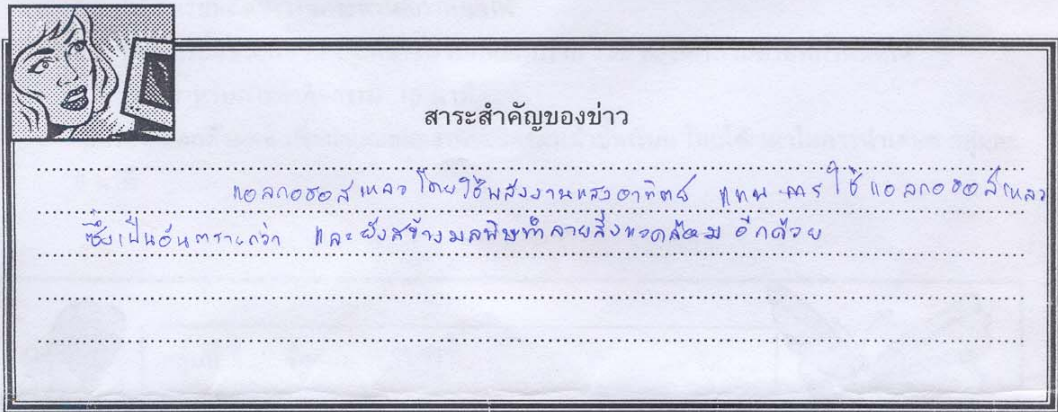 สาระสำคัญของข่าว
แอลกอฮอล์เหลว โดยใช้พลังงานแสงอาทิตย์ แทน การ ใช้ แอลกอฮอล์เหลว
ซึ่งเป็นอันตรายกว่า และ ยังสร้างมลพิษทำลายสิ่งแวดล้อม อีกด้วย